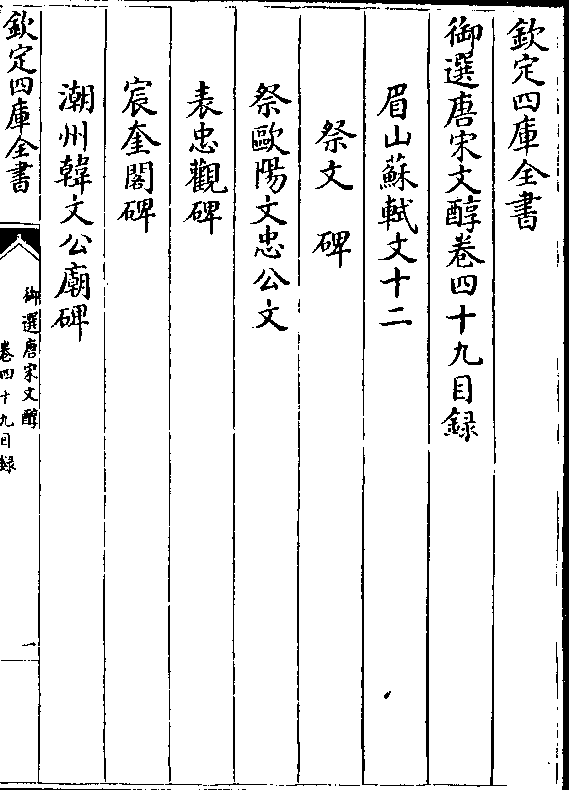 欽定四庫全書
御選唐宋文醇卷四十九目録
眉山蘇軾文十二
祭文　碑
祭歐陽文忠公文
表忠觀碑
宸奎閣碑
潮州韓文公廟碑
欽定四庫全書
御選唐宋文醇
卷四十九目録
一